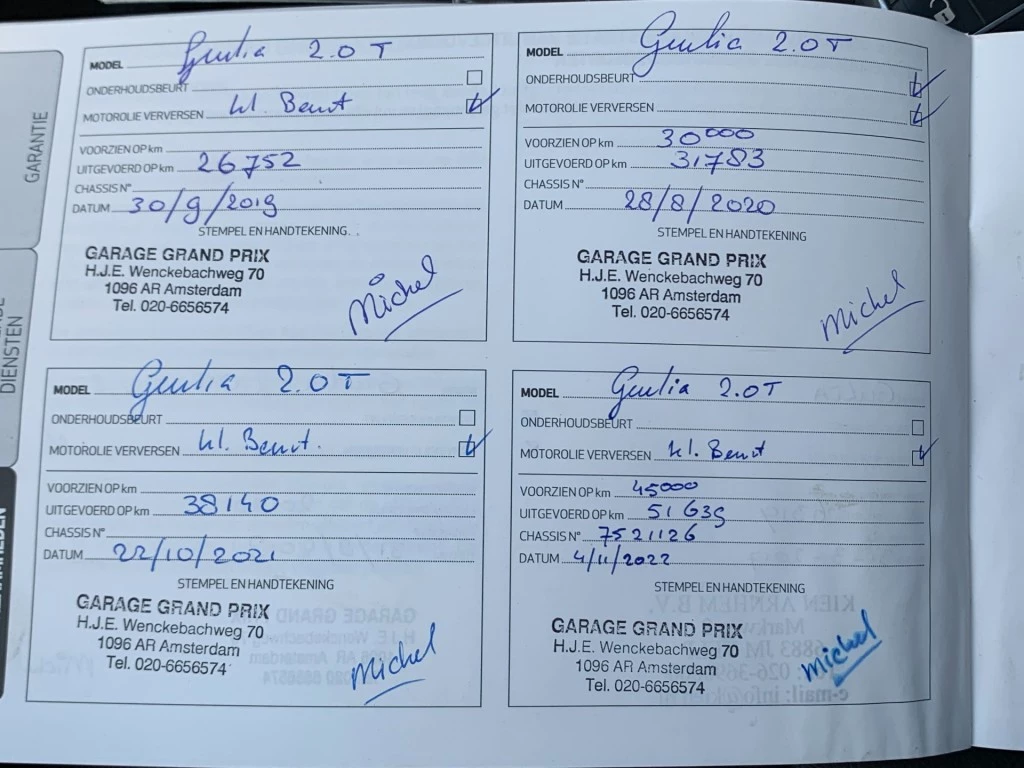 GARANTIE
DIENSTEN
MODEL Giulia 2.0 T
ONDERHOUDSBEURT
MOTOROLIE VERVERSEN kl. Beurt
VOORZIEN OP km
UITGEVOERD OP km 26752
CHASSIS N°
DATUM 30/9/2019
STEMPEL EN HANDTEKENING
GARAGE GRAND PRIX
H.J.E. Wenckebachweg 70
1096 AR Amsterdam
Tel. 020-6656574
Michel
MODEL Giulia 2.0T
ONDERHOUDSBEURT
MOTOROLIE VERVERSEN
VOORZIEN OP km 30000
UITGEVOERD OP km 31783
CHASSIS N°
DATUM 28/8/2020
STEMPEL EN HANDTEKENING
GARAGE GRAND PRIX
H.J.E. Wenckebachweg 70
1096 AR Amsterdam
Tel. 020-6656574
Michel
MODEL Giulia 2.0T
ONDERHOUDSBEURT
MOTOROLIE VERVERSEN kl. Beurt.
VOORZIEN OP km
UITGEVOERD OP km 38140
CHASSIS N°
DATUM 22/10/2021
STEMPEL EN HANDTEKENING
GARAGE GRAND PRIX
H.J.E. Wenckebachweg 70
1096 AR Amsterdam
Tel. 020-6656574
Michel
MODEL Giulia 2.0T
ONDERHOUDSBEURT
MOTOROLIE VERVERSEN kl. Beurt
VOORZIEN OP km 45000
UITGEVOERD OP km 51639
CHASSIS N° 7521126
DATUM 4/11/2022
STEMPEL EN HANDTEKENING
GARAGE GRAND PRIX
H.J.E. Wenckebachweg 70
1096 AR Amsterdam
Tel. 020-6656574
Michel